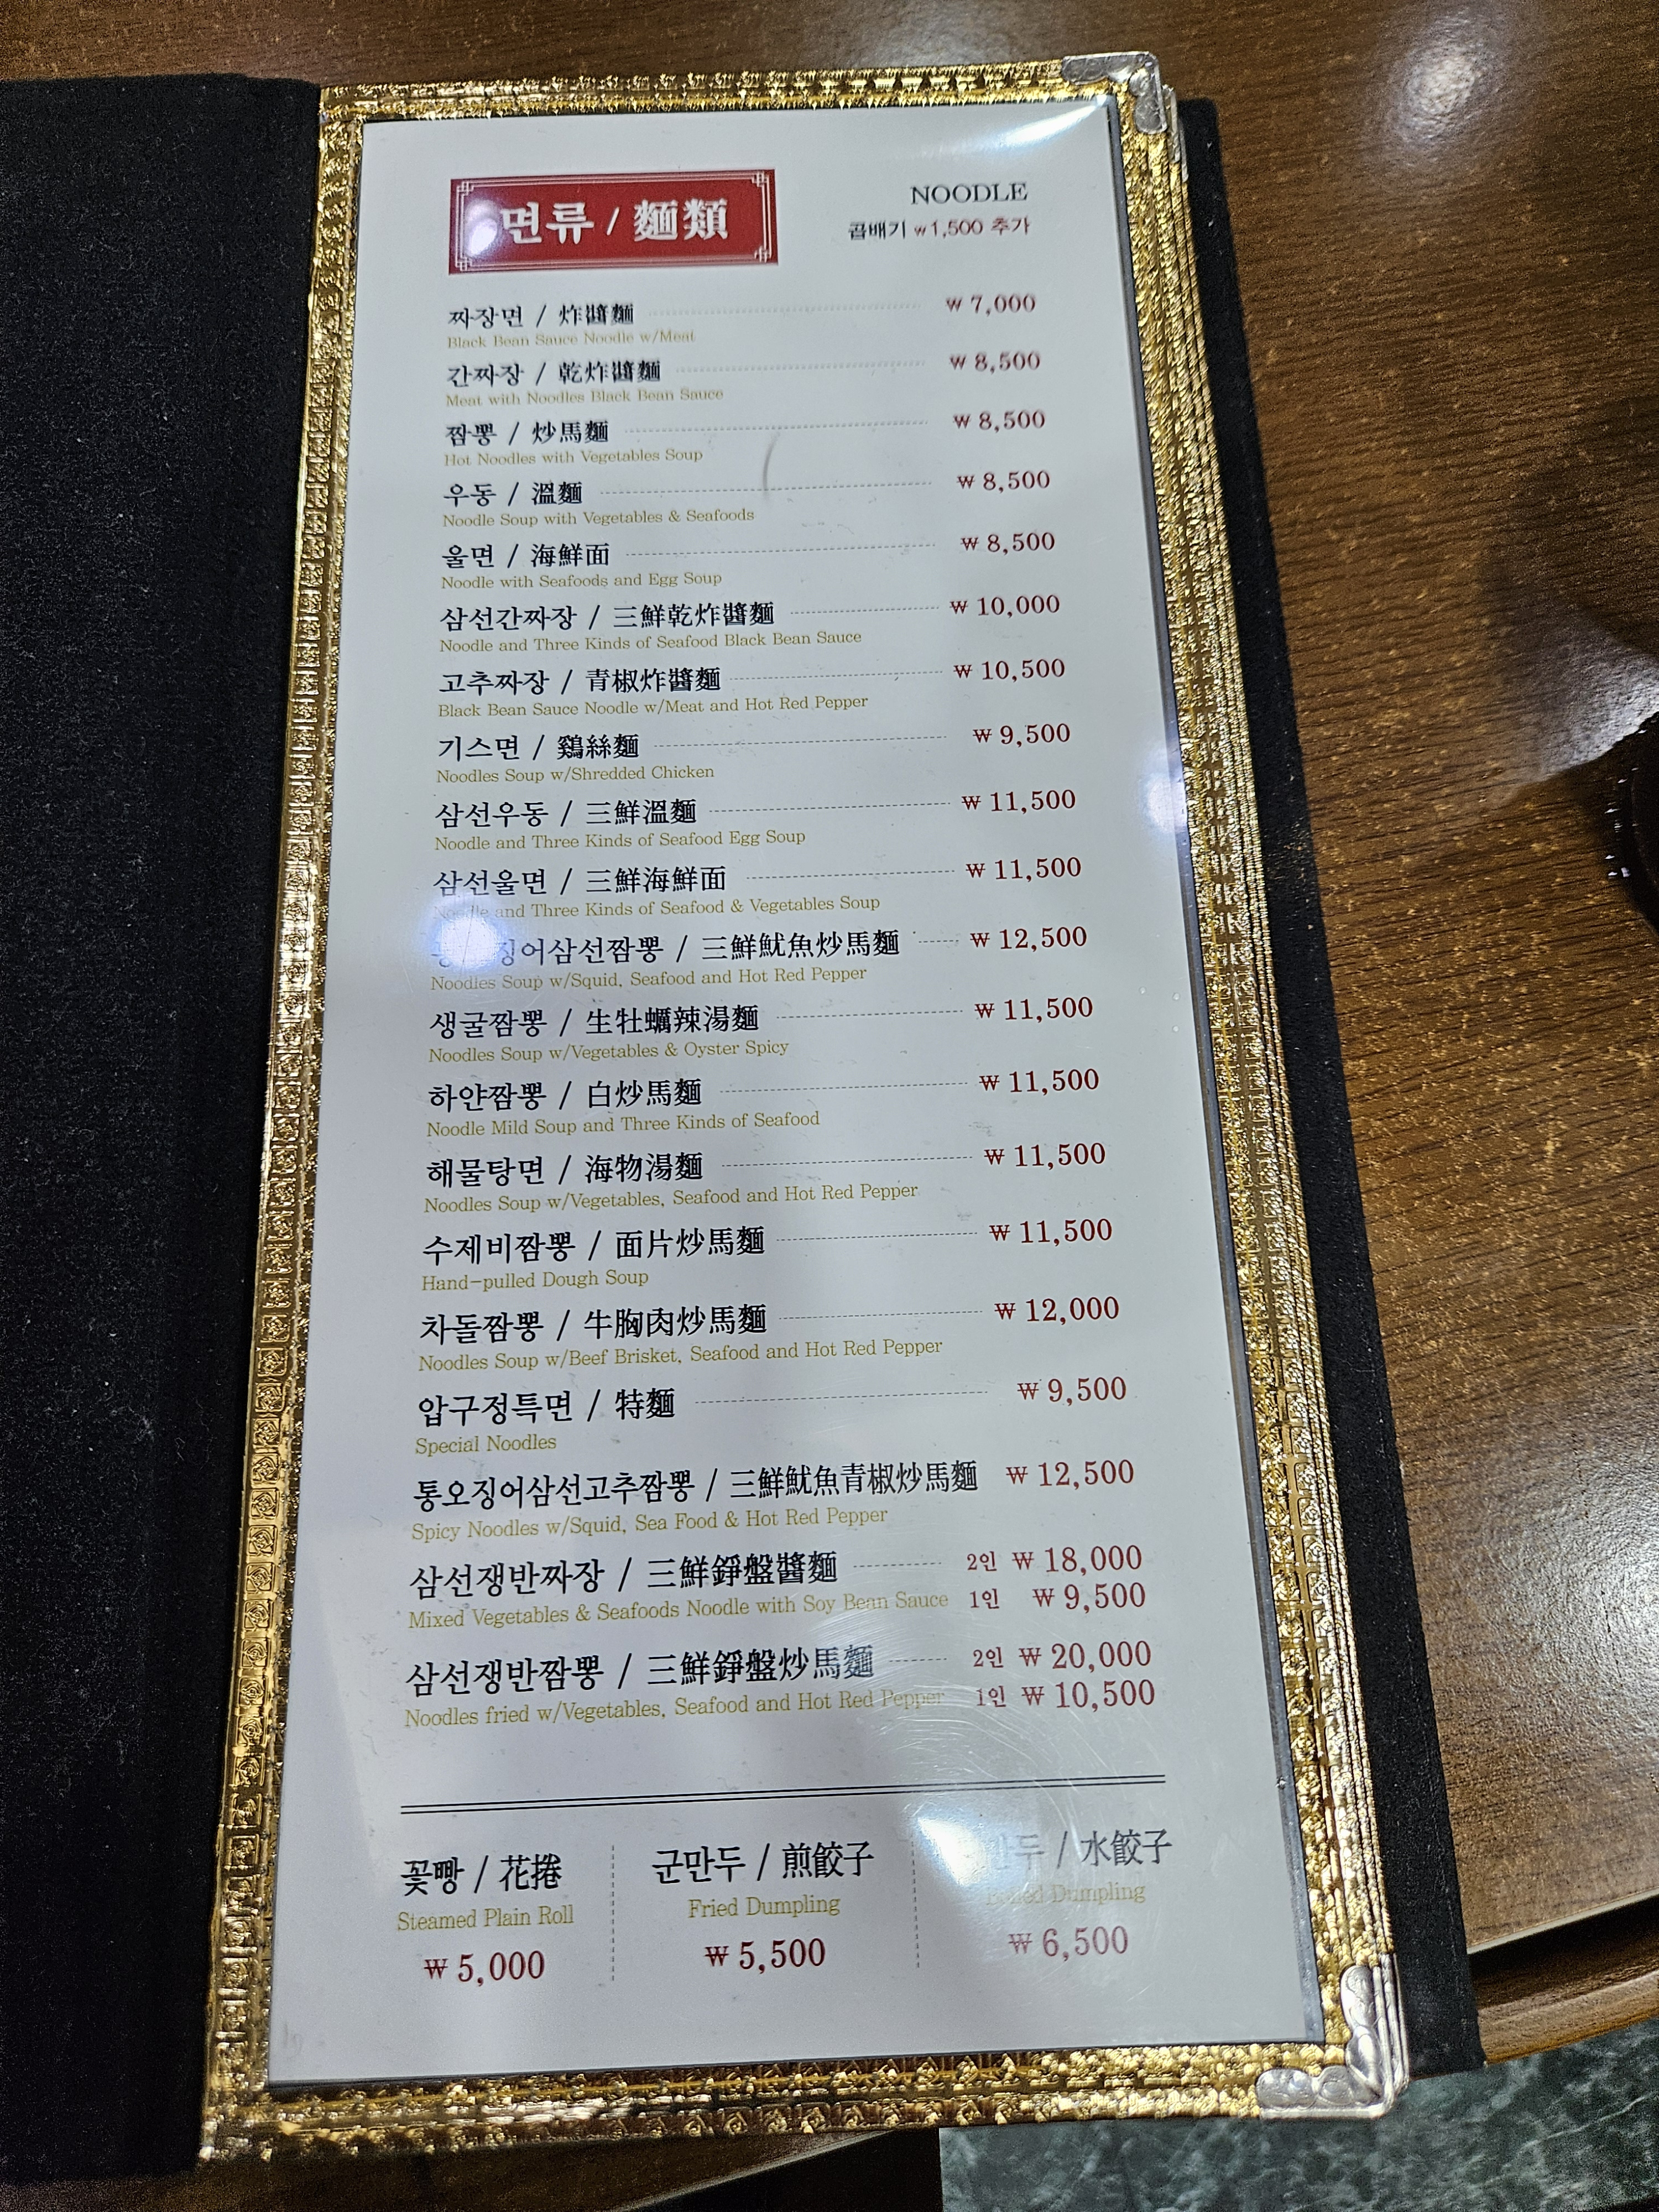 면류 / 麵類
NOODLE
곱배기 ₩1,500 추가
짜장면 / 炸醬麵 ₩ 7,000
Black Bean Sauce Noodle w/Meat
간짜장 / 乾炸醬麵 ₩ 8,500
Meat with Noodles Black Bean Sauce
짬뽕 / 炒馬麵 ₩ 8,500
Hot Noodles with Vegetables Soup
우동 / 溫麵 ₩ 8,500
Noodle Soup with Vegetables & Seafoods
울면 / 海鮮面 ₩ 8,500
Noodle with Seafoods and Egg Soup
삼선간짜장 / 三鮮乾炸醬麵 ₩ 10,000
Noodle and Three Kinds of Seafood Black Bean Sauce
고추짜장 / 青椒炸醬麵 ₩ 10,500
Black Bean Sauce Noodle w/Meat and Hot Red Pepper
기스면 / 鷄絲麵 ₩ 9,500
Noodles Soup w/Shredded Chicken
삼선우동 / 三鮮溫麵 ₩ 11,500
Noodle and Three Kinds of Seafood Egg Soup
삼선울면 / 三鮮海鮮面 ₩ 11,500
Noodle and Three Kinds of Seafood & Vegetables Soup
/ 三鮮魷魚炒馬麵 ₩ 12,500
Noodles Soup w/Squid, Seafood and Hot Red Pepper
생굴짬뽕 / 生牡蠣辣湯麵 ₩ 11,500
Noodles Soup w/Vegetables & Oyster Spicy
하얀짬뽕 / 白炒馬麵 ₩ 11,500
Noodle Mild Soup and Three Kinds of Seafood
해물탕면 / 海物湯麵 ₩ 11,500
Noodles Soup w/Vegetables, Seafood and Hot Red Pepper
수제비짬뽕 / 面片炒馬麵 ₩ 11,500
Hand-pulled Dough Soup
차돌짬뽕 / 牛胸肉炒馬麵 ₩ 12,000
Noodles Soup w/Beef Brisket, Seafood and Hot Red Pepper
압구정특면 / 特麵 ₩ 9,500
Special Noodles
통오징어삼선고추짬뽕 / 三鮮魷魚青椒炒馬麵 ₩ 12,500
Spicy Noodles w/Squid, Sea Food & Hot Red Pepper
삼선쟁반짜장 / 三鮮錚盤醬麵 2인 ₩ 18,000
Mixed Vegetables & Seafoods Noodle with Soy Bean Sauce 1인 ₩ 9,500
삼선쟁반짬뽕 / 三鮮錚盤炒馬麵 2인 ₩ 20,000
Noodles fried w/Vegetables, Seafood and Hot Red Pepper 1인 ₩ 10,500
꽃빵 / 花捲
Steamed Plain Roll
₩ 5,000
군만두 / 煎餃子
Fried Dumpling
₩ 5,500
/ 水餃子
Dumpling
₩ 6,500